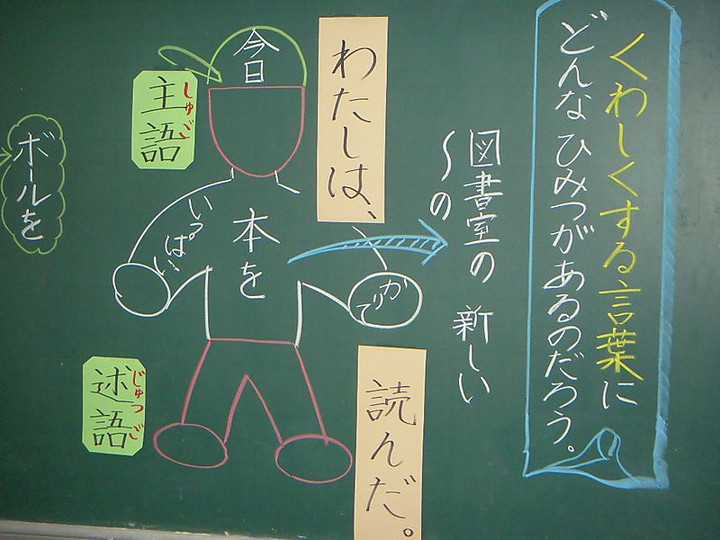 くわしくする言葉に
どんなひみつがあるのだろう。
図書室の 新しい
〜の
わたしは、
読んだ。
今日
本を
かりて
主語
しゅご
述語
じゅつご
ボールを